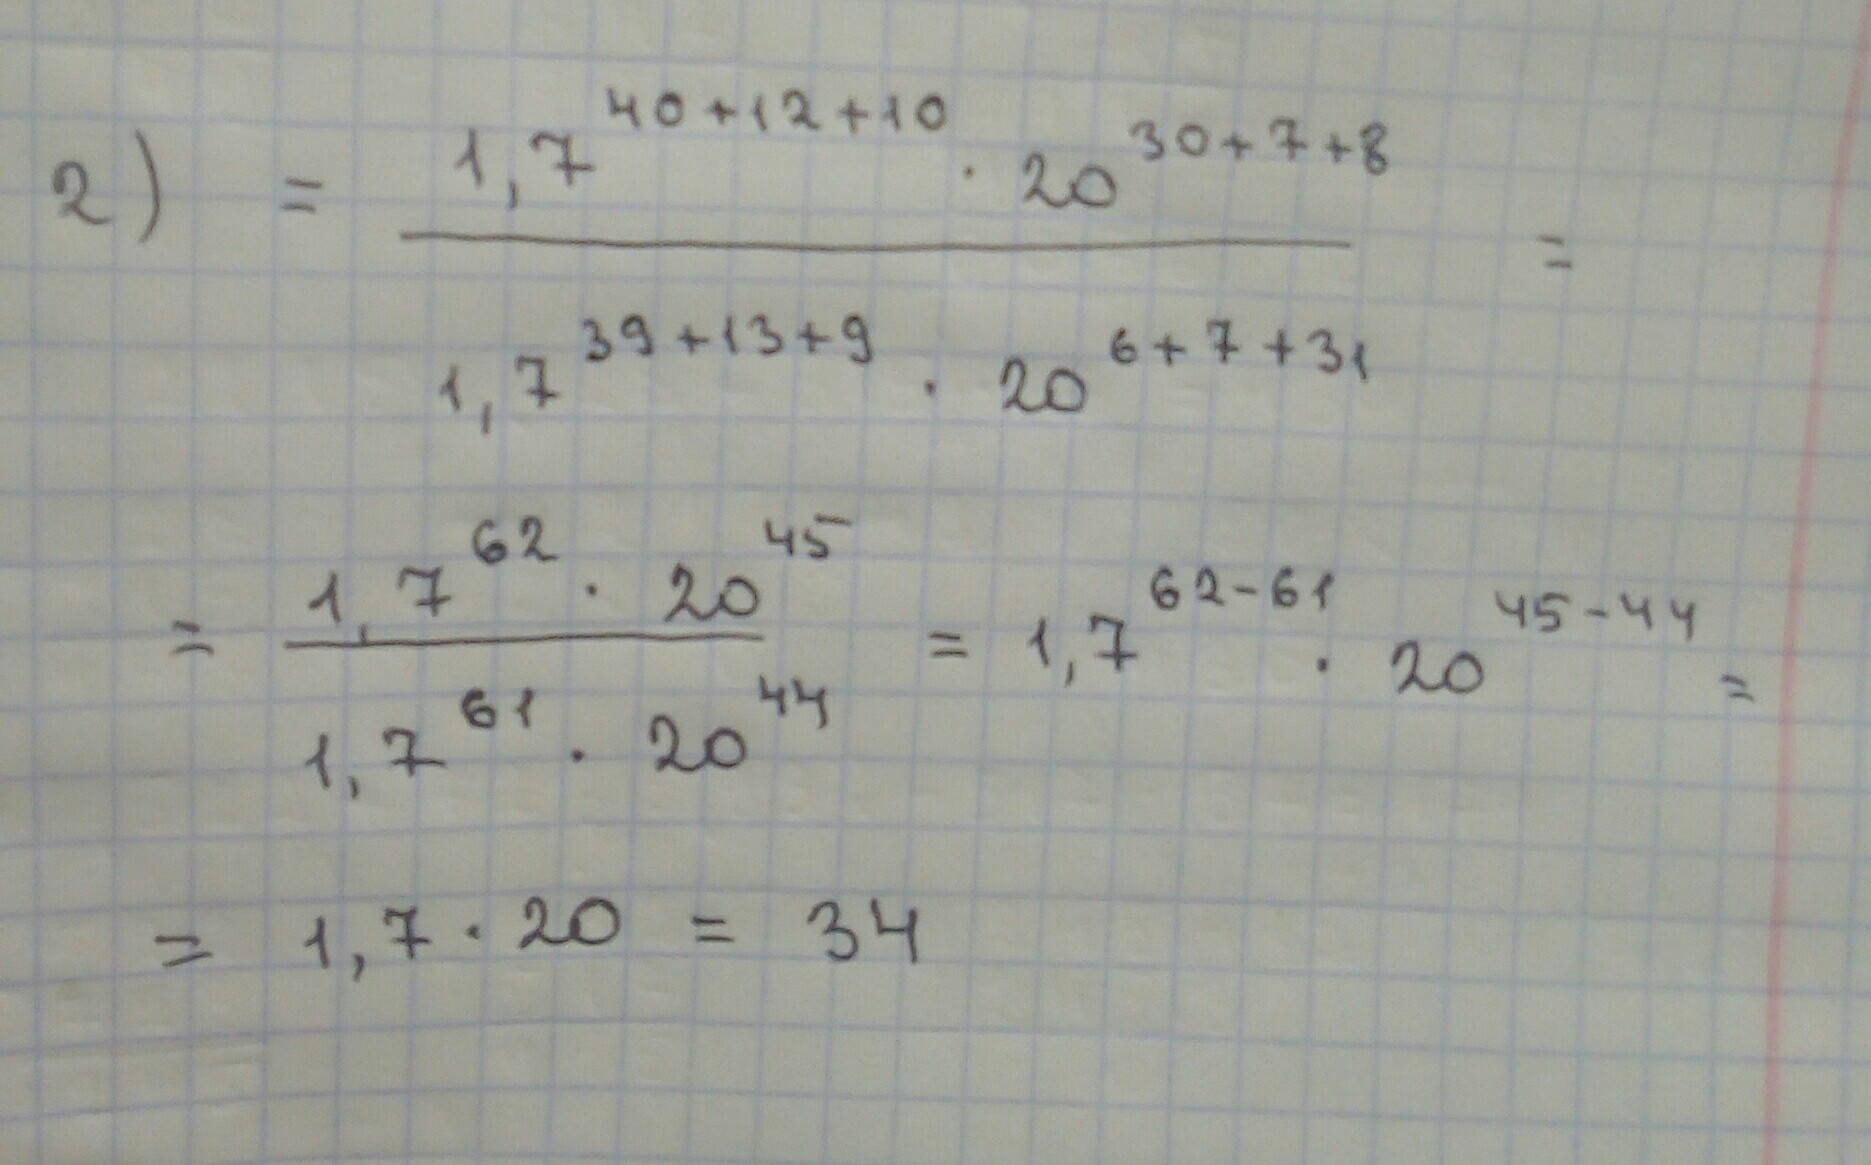 2) = \frac{1,7^{40+12+10} \cdot 20^{30+7+8}}{1,7^{39+13+9} \cdot 20^{6+7+31}} =
= \frac{1,7^{62} \cdot 20^{45}}{1,7^{61} \cdot 20^{44}} = 1,7^{62-61} \cdot 20^{45-44} =
= 1,7 \cdot 20 = 34